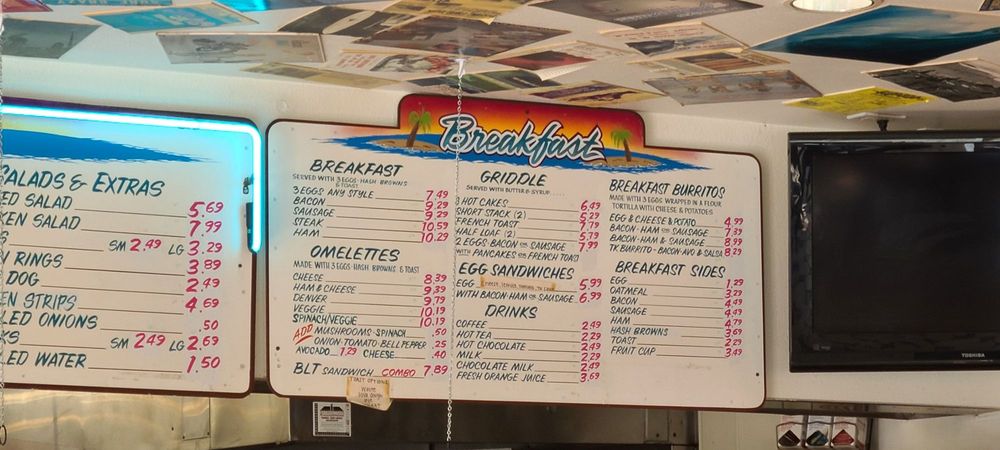 SALADS & EXTRAS
ED SALAD 5.69
KEN SALAD 7.99
SM 2.49 LG 3.29
Y RINGS 3.89
DOG 2.49
EN STRIPS 4.69
LED ONIONS .50
KS SM 2.49 LG 2.69
LED WATER 1.50
Breakfast
BREAKFAST
SERVED WITH 3 EGGS · HASH BROWNS
& TOAST
3 EGGS ANY STYLE 7.49
BACON 9.29
SAUSAGE 9.29
STEAK 10.59
HAM 10.29
OMELETTES
MADE WITH 3 EGGS · HASH BROWNS & TOAST
CHEESE 8.39
HAM & CHEESE 9.39
DENVER 9.79
VEGGIE 10.19
SPINACH/VEGGIE 10.19
ADD MUSHROOMS · SPINACH .50
ONION · TOMATO · BELL PEPPER .25
AVOCADO 1.29 CHEESE .40
BLT SANDWICH COMBO 7.89
TOAST OPTIONS
WHEAT
GRIDDLE
SERVED WITH BUTTER & SYRUP
3 HOT CAKES 6.49
SHORT STACK (2) 5.29
FRENCH TOAST 7.79
HALF LOAF (2) 5.79
2 EGGS · BACON OR SAUSAGE 7.99
WITH PANCAKES OR FRENCH TOAST
EGG SANDWICHES
EGG 5.99
WITH BACON · HAM OR SAUSAGE 6.99
DRINKS
COFFEE 2.49
HOT TEA 2.29
HOT CHOCOLATE 2.49
MILK 2.29
CHOCOLATE MILK 2.49
FRESH ORANGE JUICE 3.69
BREAKFAST BURRITOS
MADE WITH 3 EGGS WRAPPED IN A FLOUR
TORTILLA WITH CHEESE & POTATOES
EGG & CHEESE & POTATO 4.99
BACON · HAM OR SAUSAGE 7.39
BACON · HAM & SAUSAGE 8.99
TK BURRITO · BACON · AVO & SALSA 8.29
BREAKFAST SIDES
EGG 1.29
OATMEAL 3.29
BACON 4.49
SAUSAGE 4.49
HAM 4.79
HASH BROWNS 3.69
TOAST 2.29
FRUIT CUP 3.49
TOSHIBA